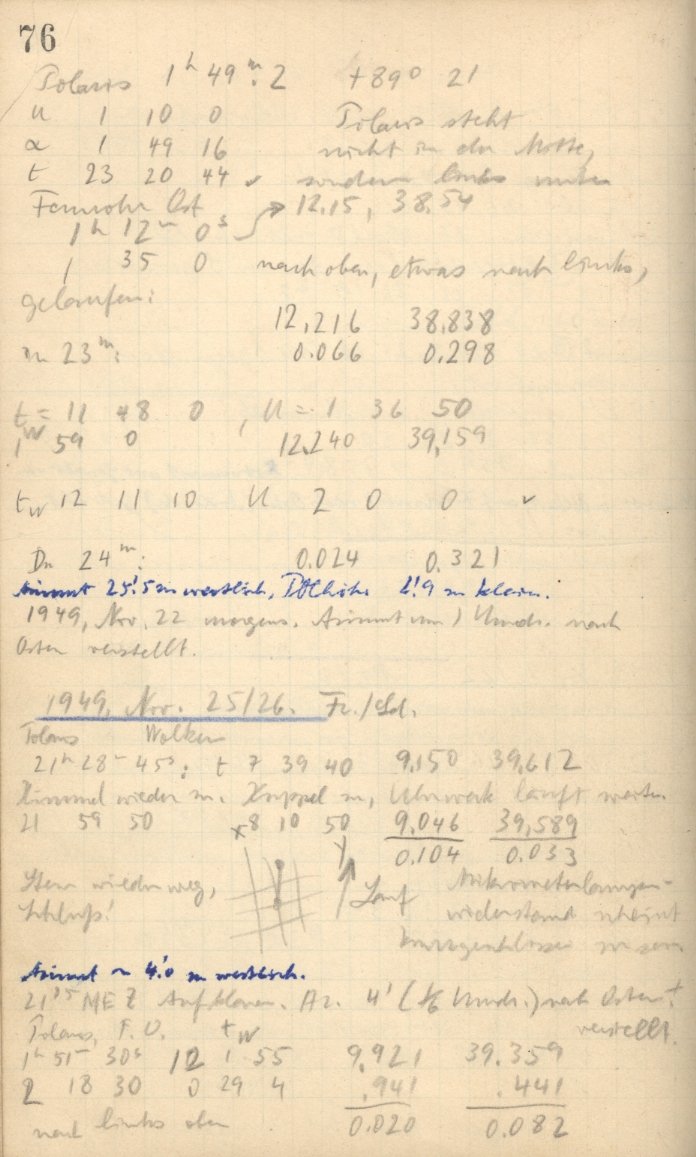 76
Polaris 1ʰ 49ᵐ.2 +89° 21
U 1 10 0 Polaris steht
α 1 49 16 nicht in der Mitte,
t 23 20 44 ✓ sondern links unten
Fernrohr Ost → 12.15, 38.54
1ʰ 12ᵐ 0ˢ
1 35 0 nach oben, etwas nach links,
gelaufen:
12,216 38,838
In 23ᵐ: 0.066 0.298
t = 11 48 0, U = 1 36 50
W
1 59 0 12.240 39,159
t_W 12 11 10 U 2 0 0 ✓
In 24ᵐ: 0.024 0.321
Azimut 25'.5 zu westlich, Polhöhe 1'.9 zu klein.
1949, Nov. 22 morgens. Azimut um 1 Umdr. nach
Osten verstellt.
1949, Nov. 25/26. Fr./Ld.
Polaris Wolken
21ʰ 28ᵐ 45ˢ: t 7 39 40 9.150 39,612
Himmel wieder zu. Kuppel zu, Uhrwerk läuft weiter.
21 59 50 8 10 50 9,046 39,589
0.104 0.033
Stern wieder weg, Lauf Mikrometerlampen-
Schluß! widerstand scheint
kurzgeschlossen zu sein
Azimut ~ 4'.0 zu westlich.
21ʰ15 MEZ Aufklaren. Az. 4' (1/6 Umdr.) nach Osten
verstellt.
Polaris, F. O. t_W
1ʰ 51ᵐ 30ˢ 12 1 55 9.921 39.359
2 18 30 0 29 4 .941 .441
nach links oben 0.020 0.082